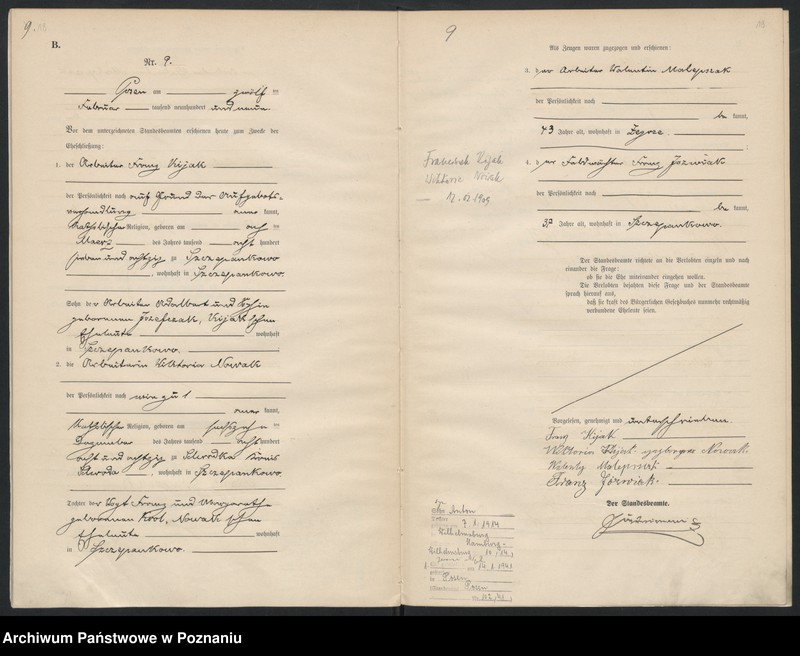 9.
B.
Nr. 9.
Posen am zwölf ten
Februar tausend neunhundert und neun.
Vor dem unterzeichneten Standesbeamten erschienen heute zum Zwecke der
Eheschließung:
1. der Arbeiter Franz Kijak
der Persönlichkeit nach auf Grund der Aufgebots-
verhandlung aner kannt,
katholischer Religion, geboren am
März des Jahres tausend acht hundert
sieben und achtzig zu Szczepankowo
, wohnhaft in Szczepankowo.
Sohn der Arbeiter Adalbert und
geborenen Józefczak, Kijak'schen
Eheleute wohnhaft
in Szczepankowo.
2. die Arbeiterin Viktoria Nowak
der Persönlichkeit nach wie zu 1
aner kannt,
katholischer Religion, geboren am sechszehn ten
Dezember des Jahres tausend acht hundert
acht und achtzig zu
Schroda, wohnhaft in Szczepankowo
Tochter der Vogt Franz und Margaretha
geborenen Nowak'schen
Eheleute wohnhaft
in Szczepankowo.
9
Franciszek Kijak
Wiktoria Nowak
Als Zeugen waren zugezogen und erschienen:
3. der Arbeiter Valentin Malepszak
der Persönlichkeit nach
be kannt,
43 Jahre alt, wohnhaft in Zegrze.
4. der Feldwächter Franz Józwiak
der Persönlichkeit nach
be kannt,
Jahre alt, wohnhaft in Szczepankowo.
Der Standesbeamte richtete an die Verlobten einzeln und nach
einander die Frage:
ob sie die Ehe miteinander eingehen wollen.
Die Verlobten bejahten diese Frage und der Standesbeamte
sprach hierauf aus,
daß sie kraft des Bürgerlichen Gesetzbuches nunmehr rechtmäßig
verbundene Eheleute seien.
Vorgelesen, genehmigt und unterschrieben.
Franz Kijak
Wiktoria Kijak geborene Nowak
Walenty Malepszak
Franz Józwiak.
Der Standesbeamte.
Anton
7. 1. 1914
Wilhelmsburg
Hamburg
Wilhelmsburg
14.1.1941
in Posen
Posen
Archiwum Państwowe w Poznaniu